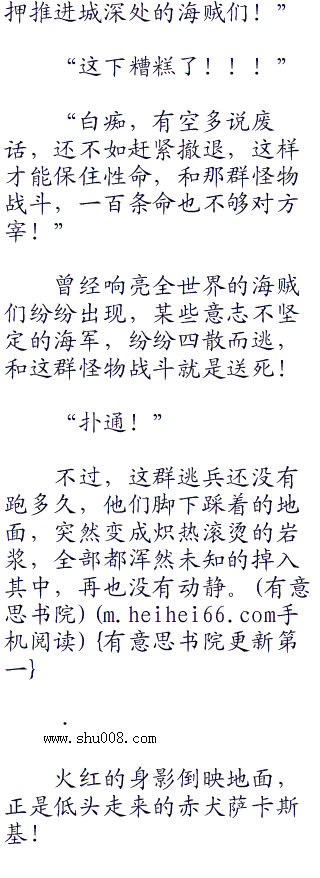 押推进城深处的海贼们！”
“这下糟糕了！！！”
“白痴，有空多说废
话，还不如赶紧撤退，这样
才能保住性命，和那群怪物
战斗，一百条命也不够对方
宰！”
曾经响亮全世界的海贼
们纷纷出现，某些意志不坚
定的海军，纷纷四散而逃，
和这群怪物战斗就是送死！
“扑通！”
不过，这群逃兵还没有
跑多久，他们脚下踩着的地
面，突然变成炽热滚烫的岩
浆，全部都浑然未知的掉入
其中，再也没有动静。(有意
思书院)(m.heihei66.com手
机阅读){有意思书院更新第
一}
.
www.shu008.com
火红的身影倒映地面，
正是低头走来的赤犬萨卡斯
基！